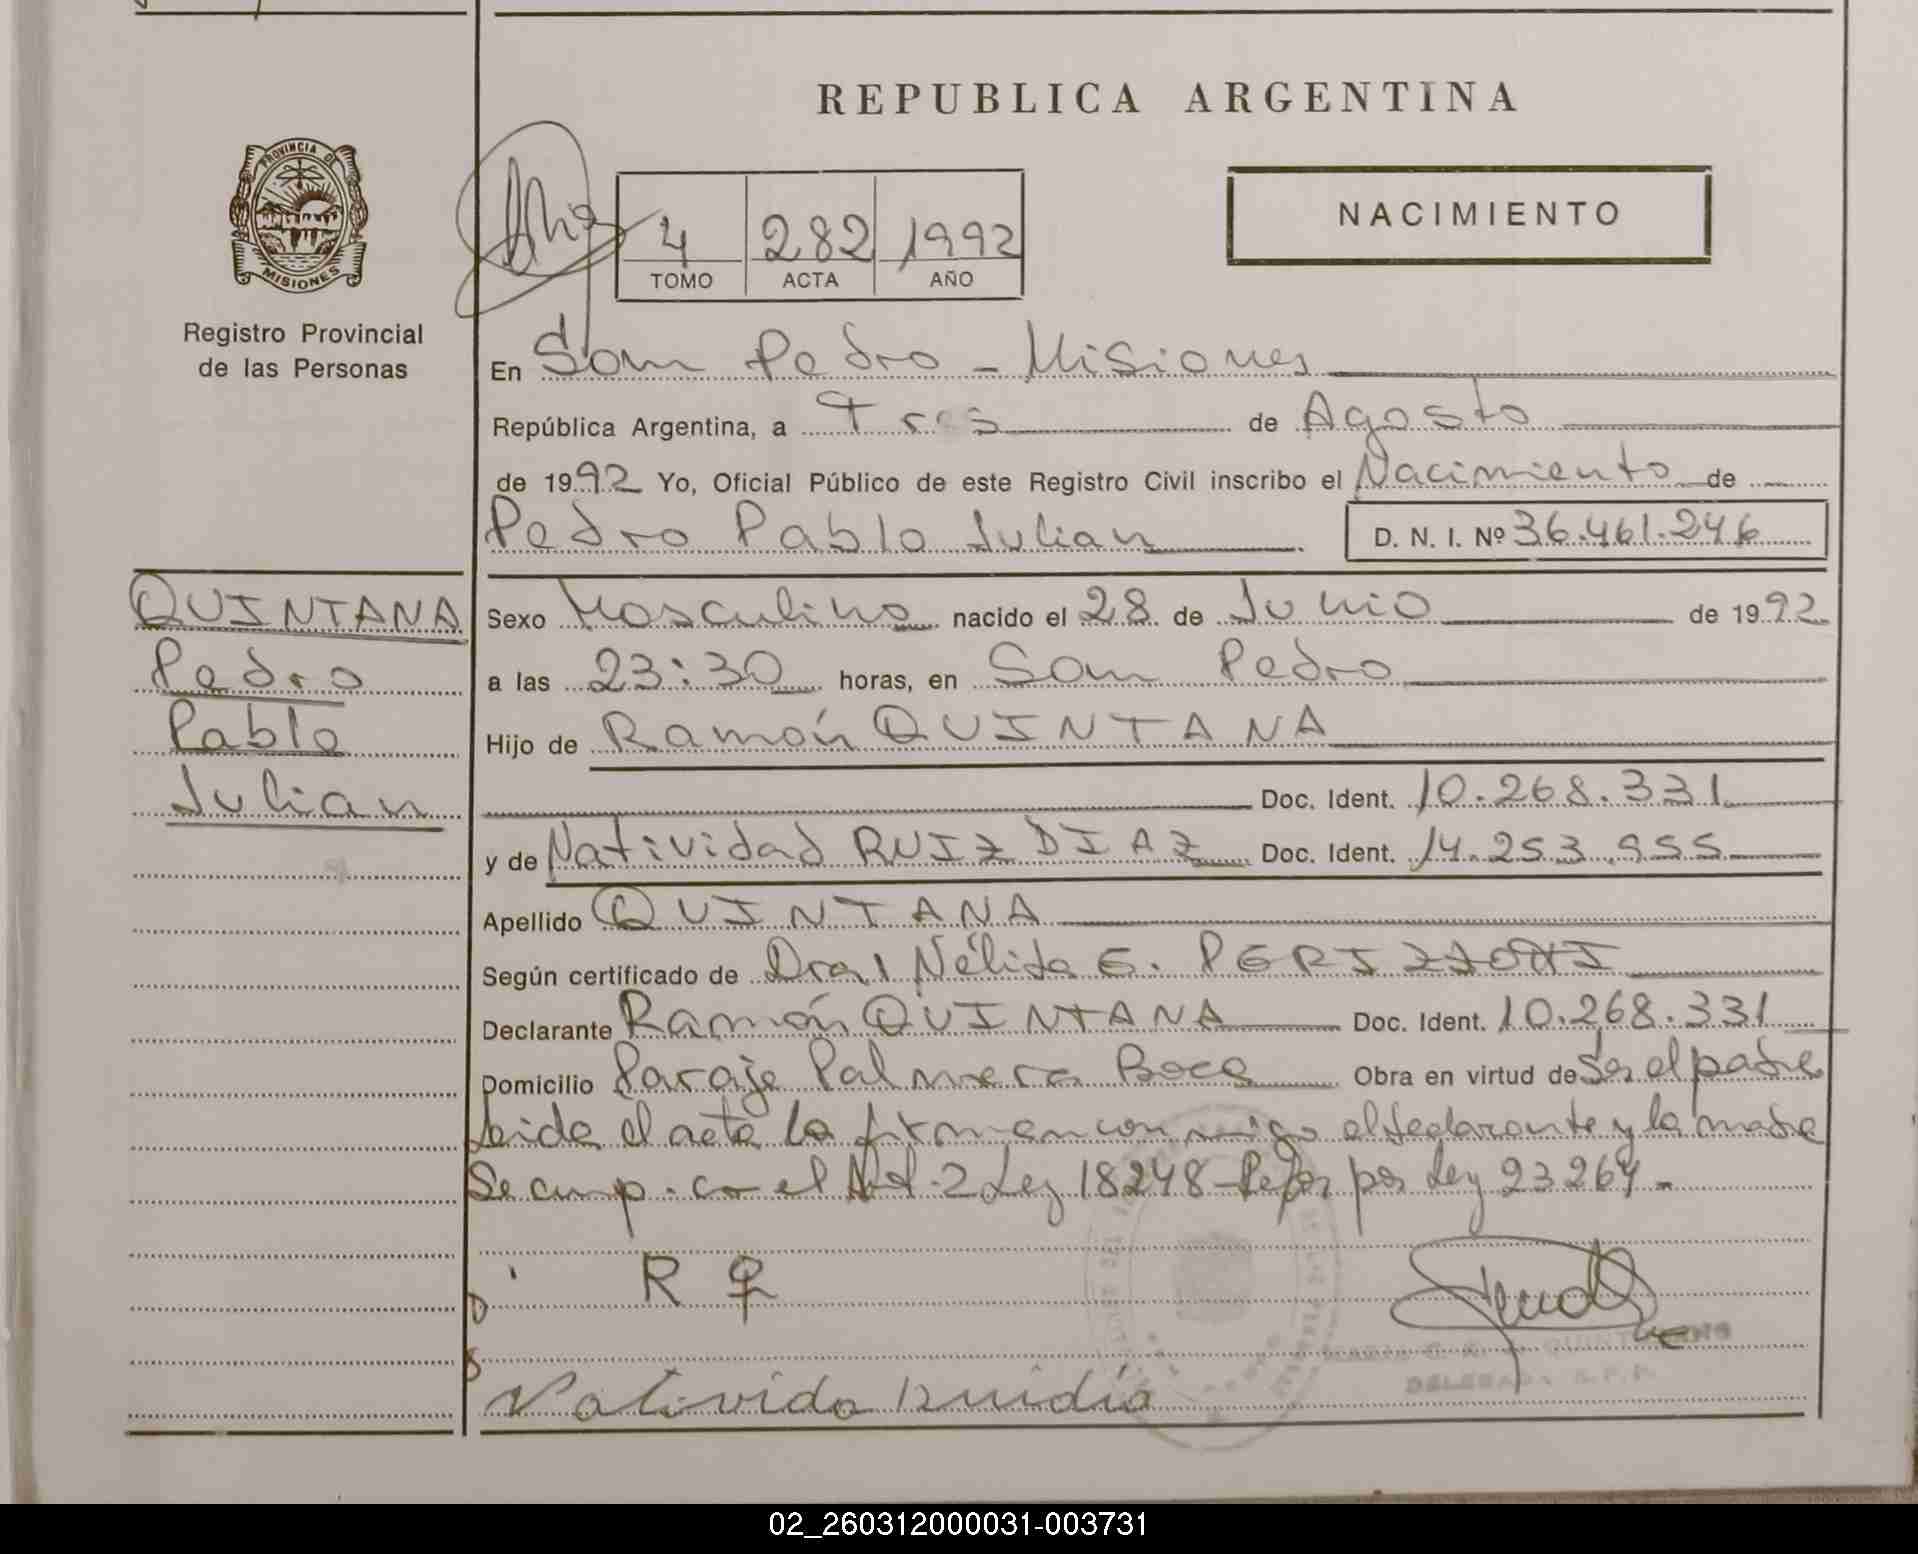 REPUBLICA ARGENTINA
PROVINCIA DE
MISIONES
Registro Provincial
de las Personas
4 282 1992
TOMO ACTA AÑO
NACIMIENTO
En San Pedro - Misiones
República Argentina, a Tres de Agosto
de 1992 Yo, Oficial Público de este Registro Civil inscribo el Nacimiento de
Pedro Pablo Julian D. N. I. Nº 36.461.246
QUINTANA
Pedro
Pablo
Julian
Sexo Masculino nacido el 28 de Junio de 1992
a las 23:30 horas, en San Pedro
Hijo de Ramón QUINTANA
Doc. Ident. 10.268.331
y de Natividad RUIZ DIAZ Doc. Ident. 14.253.955
Apellido QUINTANA
Según certificado de Dra. Nélida E.
Declarante Ramón QUINTANA Doc. Ident. 10.268.331
Domicilio Paraje Palmera Boca Obra en virtud de Ser el padre
Leida el acta la firman conmigo el declarante y la madre
Se cump. con el Art. 2 Ley 18248 - Refor por Ley 23264 -
R
DELEGADA R.P.P.
02_260312000031-003731